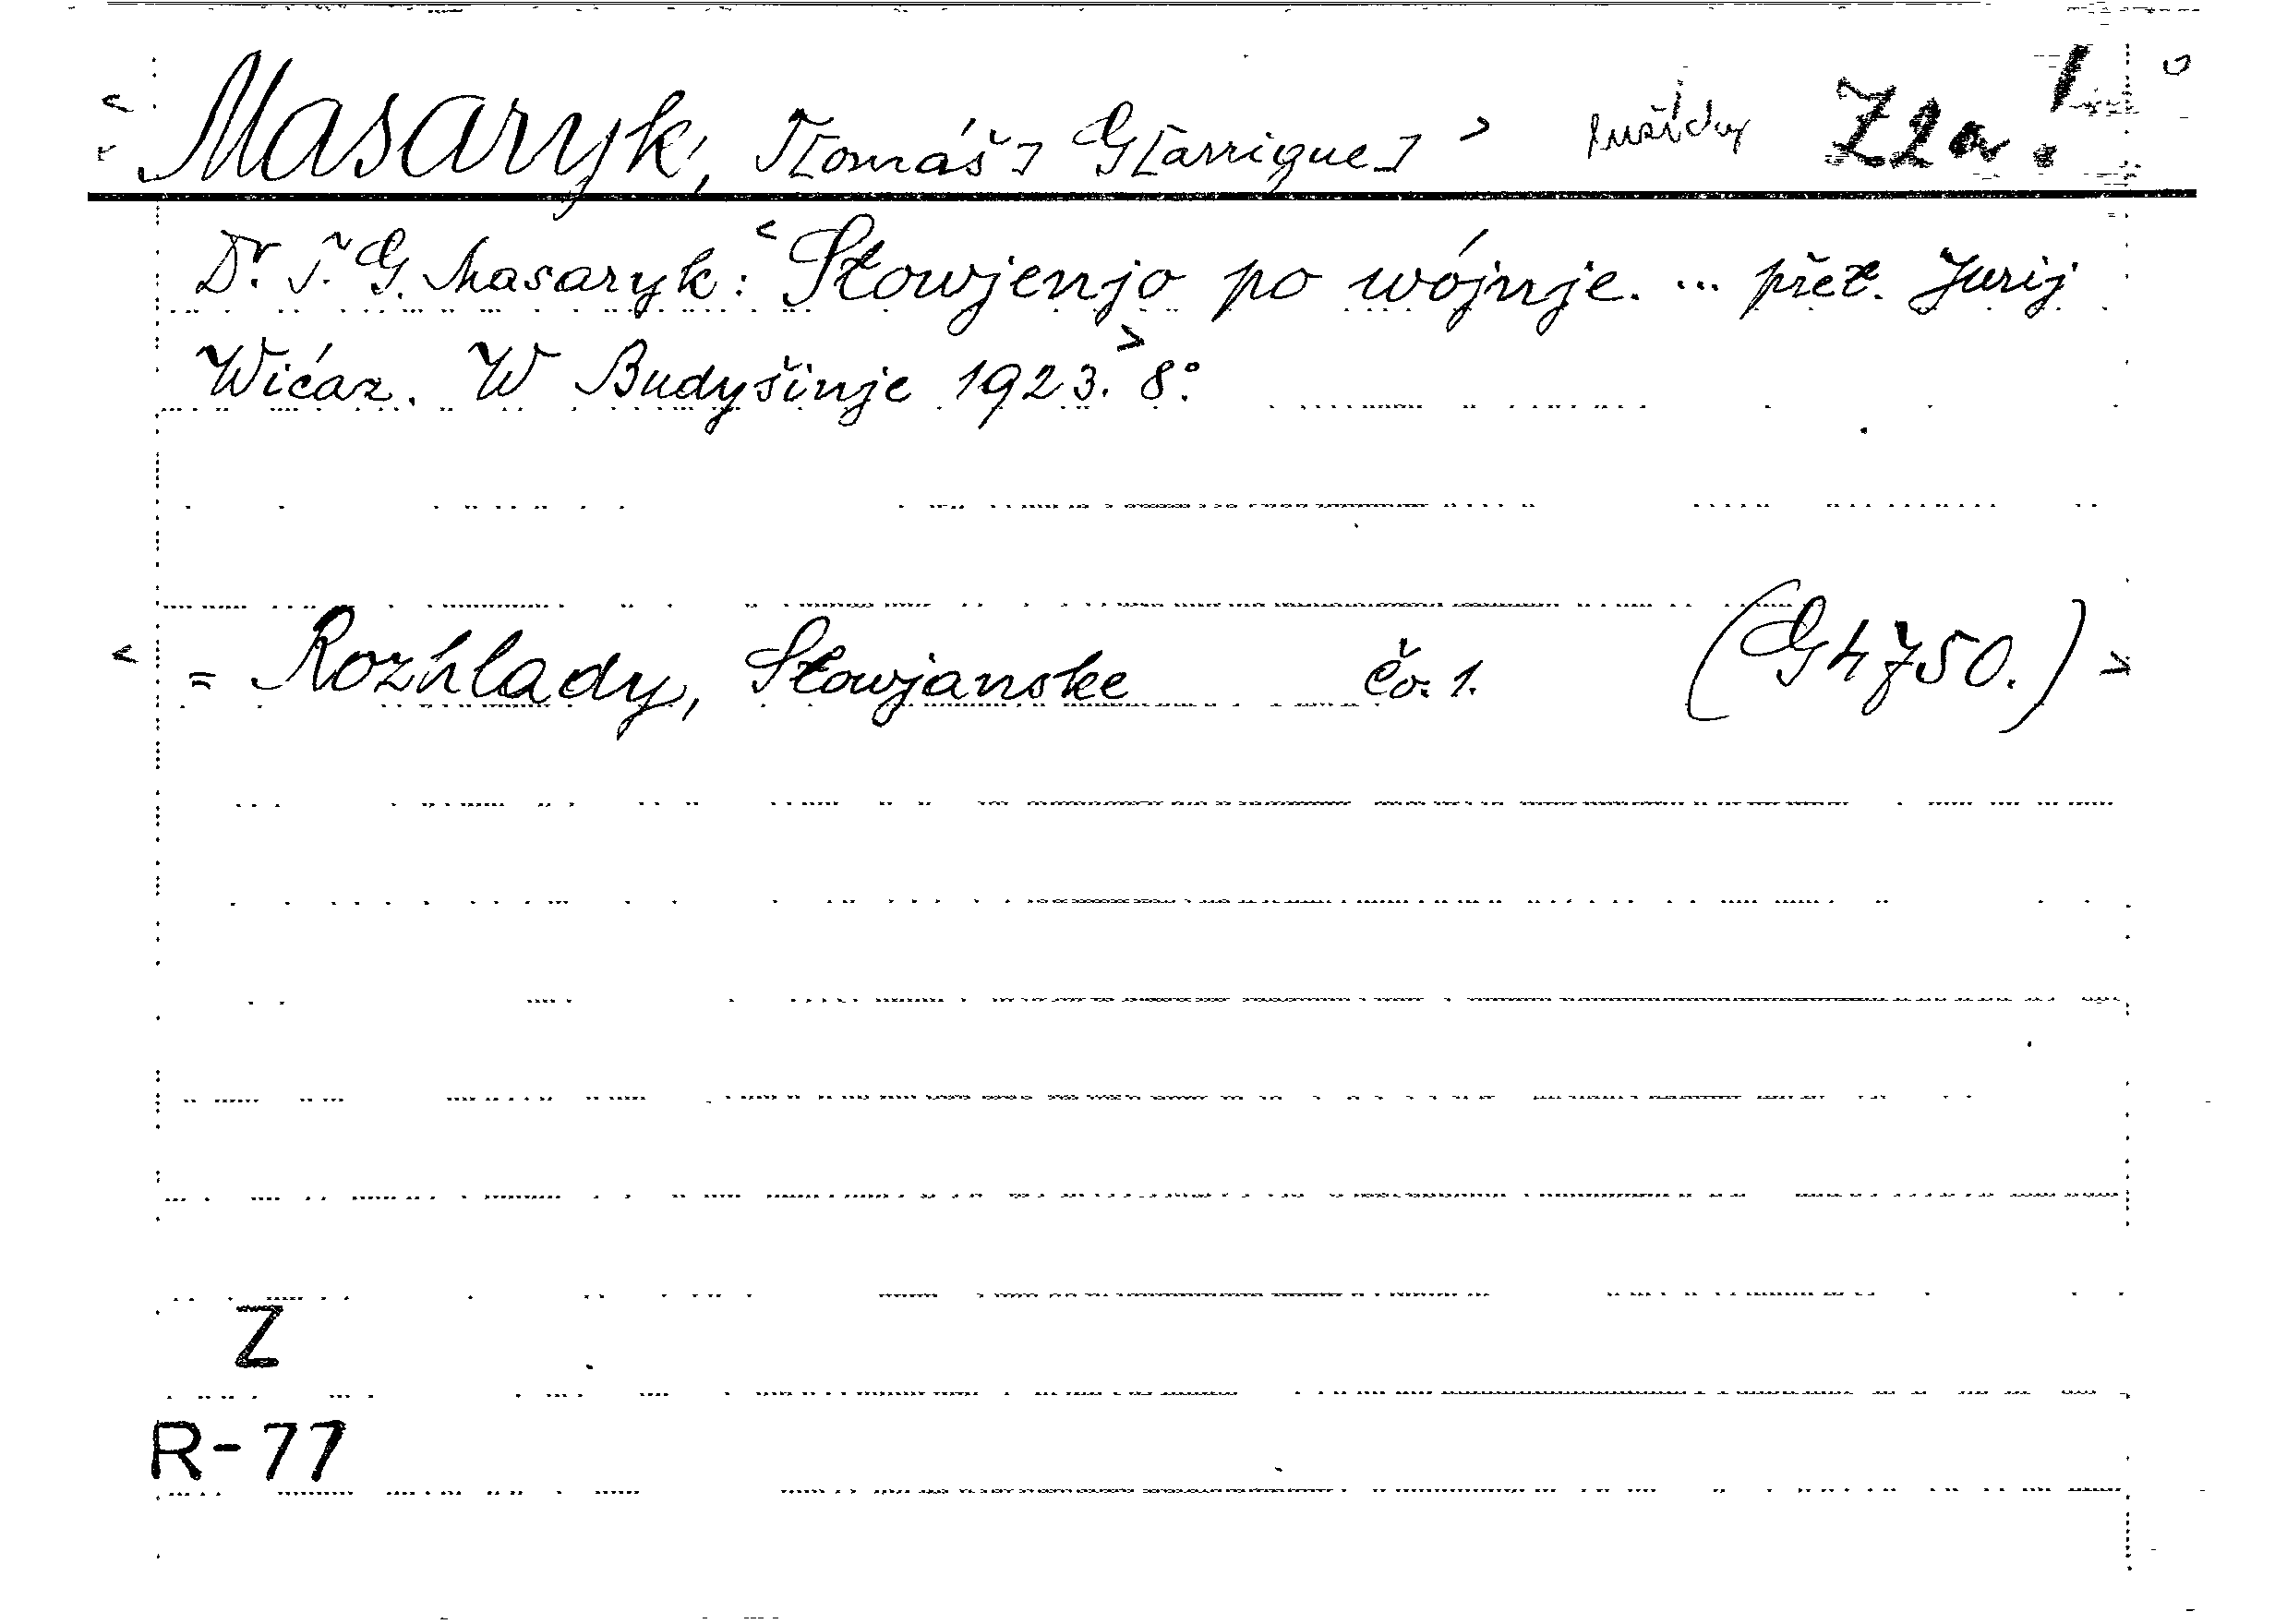 < Masaryk, T[omáš] G[arrigue] > Z2a.
Dr. T. G. Masaryk: < Słowjenjo po wójnje. ... přeł. Jurij
Wićaz. W Budyšinje 1923. > 8°.
< = Rozhlady, Słowjanske čo. 1. (G 4750.) >
Z
R-77